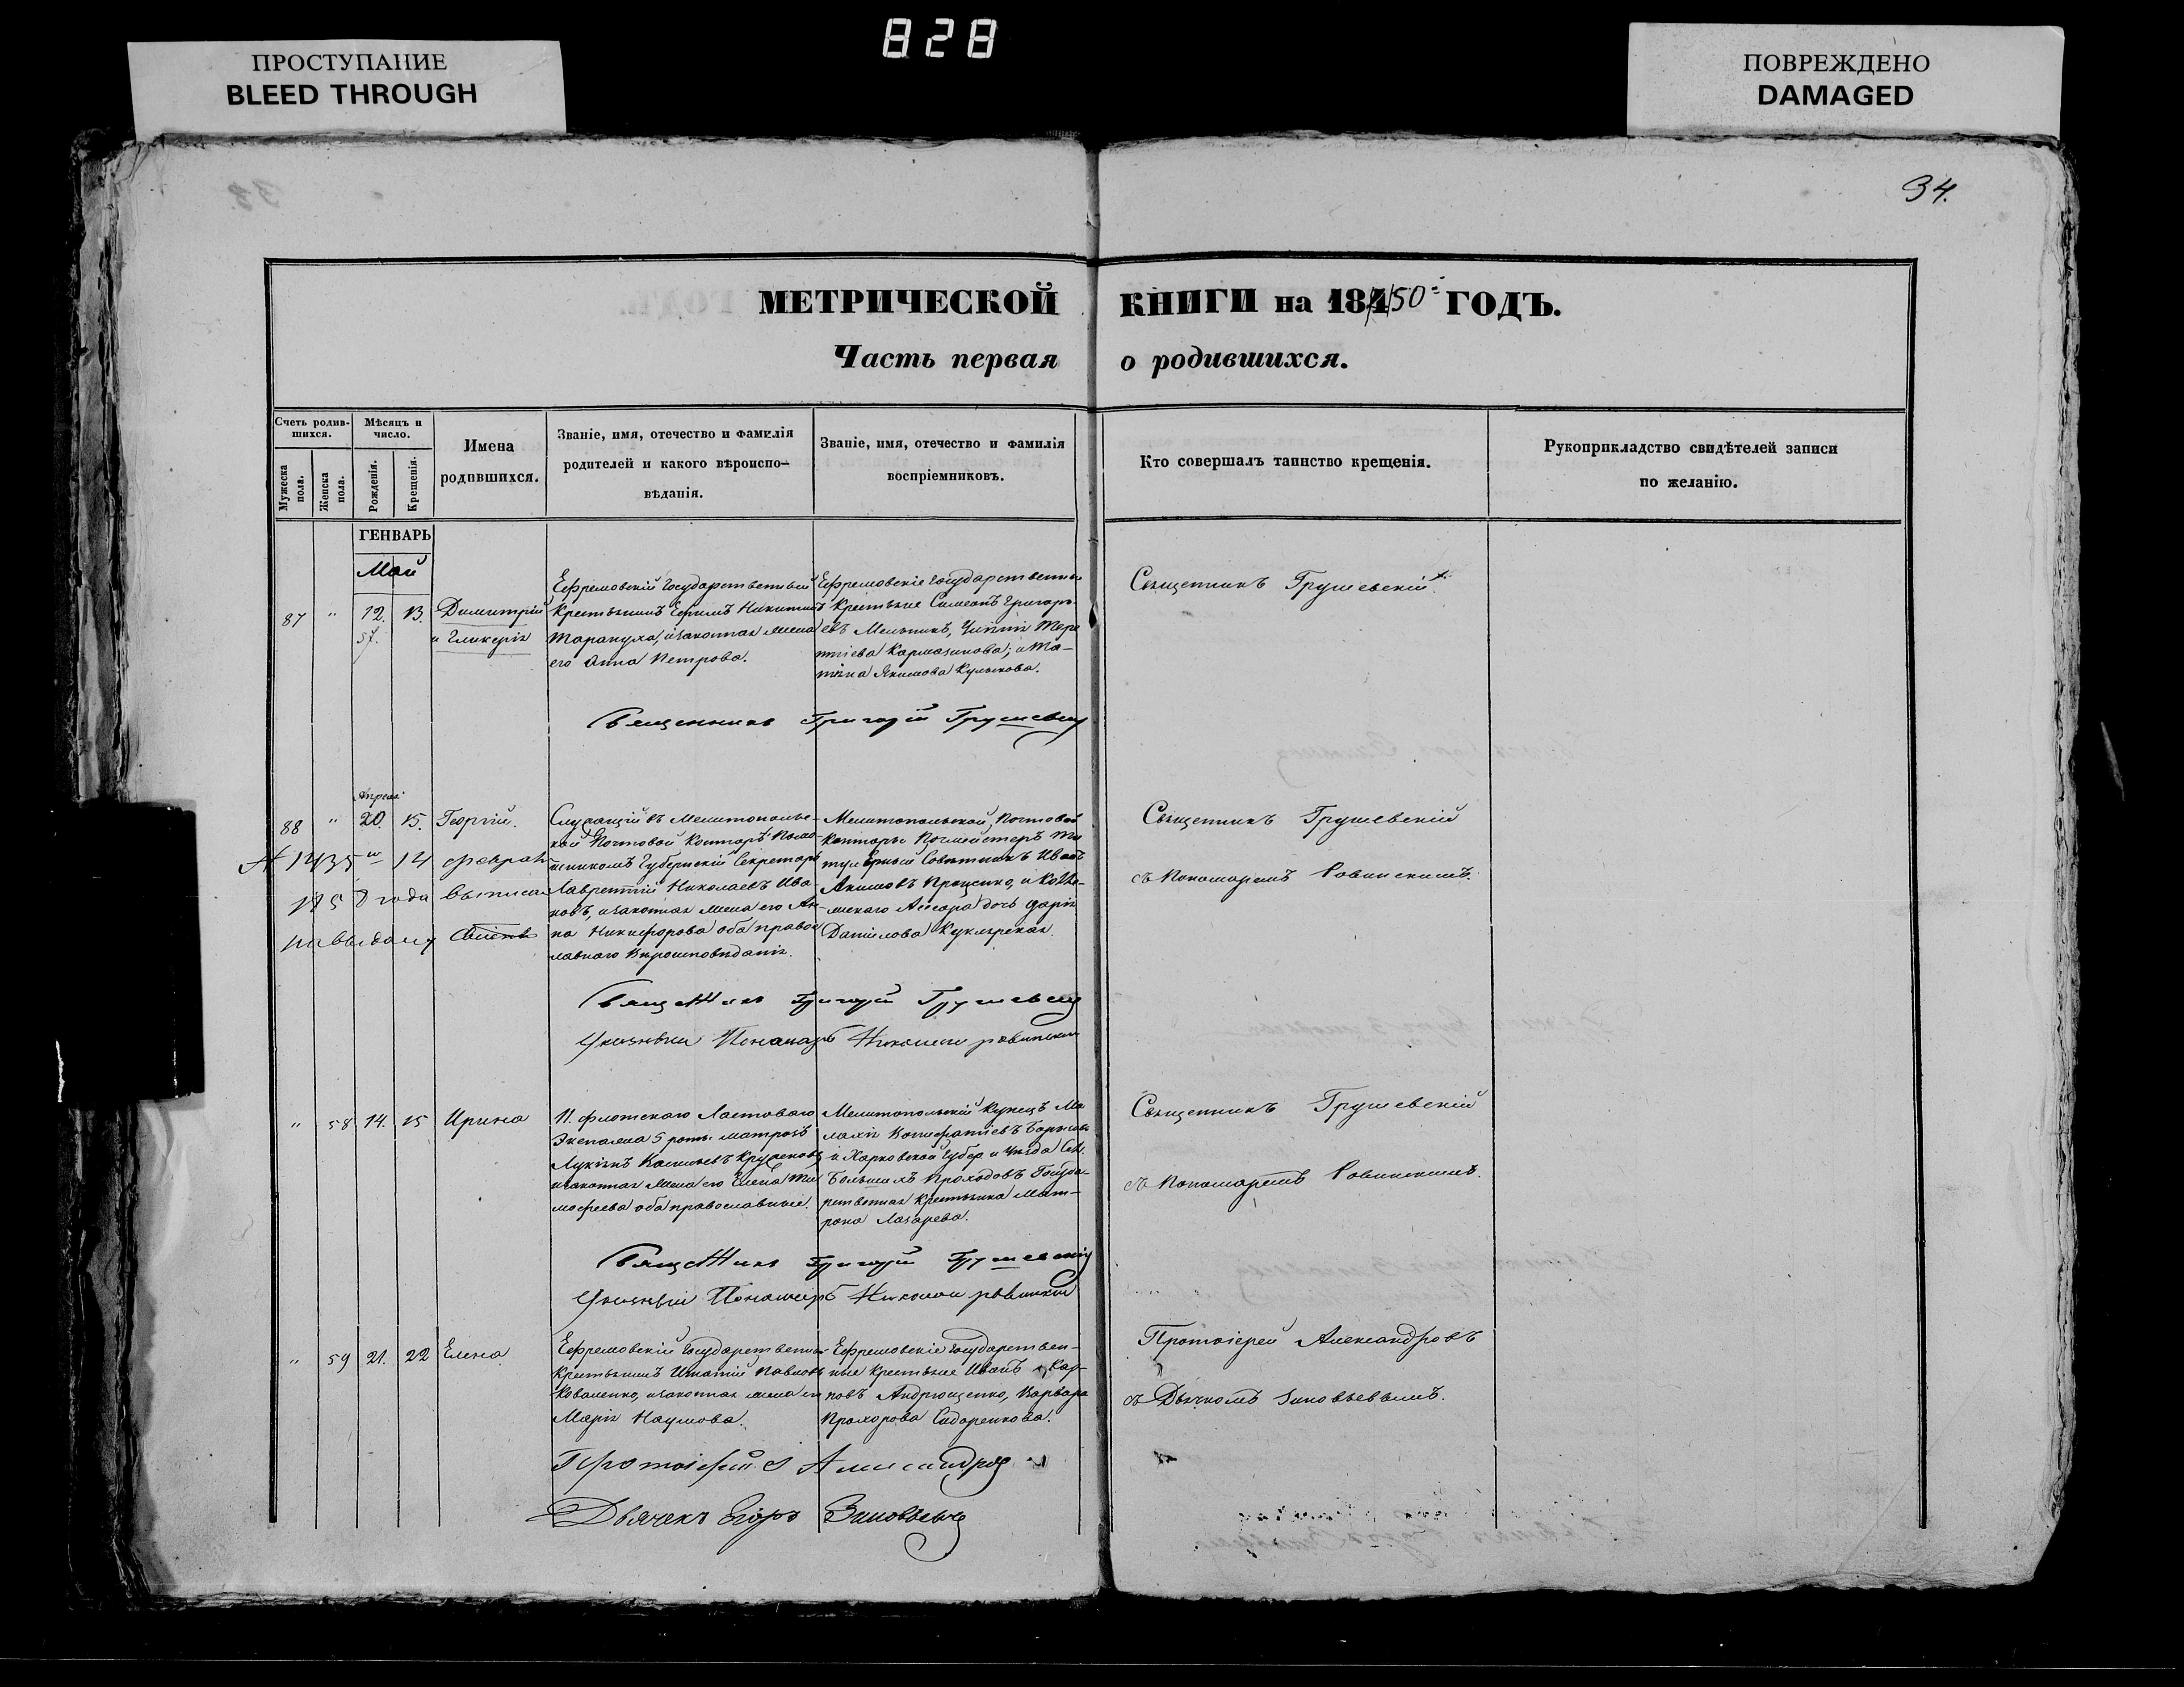 828
ПРОСТУПАНИЕ
BLEED THROUGH
ПОВРЕЖДЕНО
DAMAGED
34.
МЕТРИЧЕСКОЙ КНИГИ на 1850 ГОДЪ.
Часть первая о родившихся.
Счетъ родив-
шихся.
Мужеска пола.
Женска пола.
Мѣсяцъ и число.
Рожденія.
Крещенія.
Имена
родившихся.
Званіе, имя, отечество и фамилія
родителей и какого вѣроиспо-
вѣданія.
Званіе, имя, отечество и фамилія
воспріемниковъ.
Кто совершалъ таинство крещенія.
Рукоприкладство свидѣтелей записи
по желанію.
ГЕНВАРЬ
Май
87 " 12. 13.
57.
Димитрій
и Гликерія
Ефремовскій Государственный
Крестьянинъ Ефимъ Никитинъ
Таракуха, и законная жена
его Анна Петрова.
Ефремовскіе Государственные
Крестьяне Симеонъ Григорь-
евъ Мельникъ,
Кармазинова; и Та-
тіяна Якимова Куликова.
Священникъ Грушевскій
Священникъ Григорій Грушевскій
Апреля
88 " 20. 15. Георгій.
14 февраля
1858 года выписан
Служащій въ Мелитополь-
кой Почтовой Конторѣ Помо-
щникомъ Губернскій Секретарь
Лаврентій Николаевъ Ива-
новъ, и законная жена его Ан-
на Никифорова оба правос-
лавнаго вѣроисповѣданія.
Мелитопольской Почтовой
Конторы Почмейстеръ Ти
тулярный Совѣтникъ Иванъ
Акимовъ Проценко, и Колле-
жскаго Ассесора дочь Дарія
Даніилова
Священникъ Грушевскій
съ Пономаремъ Ровинскимъ.
Священникъ Григорій Грушевскій
Указный Пономарь Николай Ровинскій
" 58 14. 15 Ирина
11. флотскаго Ластоваго
Экипажа 5 роты матрозъ
Лукіянъ Васильевъ
и законная жена его Елена Ти
мофеева оба православные.
Мелитопольскій Купецъ Ма
лахія Вонифатіевъ
и Харковской Губер. и уѣзда Сел.
Большихъ Проходовъ Госуда-
рственная Крестьянка Мат-
рона Лазарева.
Священникъ Грушевскій
съ Пономаремъ Ровинскимъ.
Священникъ Григорій Грушевскій
Указный Пономарь Николай Ровинскій
" 59 21. 22 Елена
Ефремовскій Государственный
Крестьянинъ Игнатій Павловъ
Коваленко, и законная жена его
Марія Наумова.
Ефремовскіе Государствен-
ные Крестьяне Иванъ Кар-
повъ Андрющенко, Варвара
Прохорова Сидоренкова.
Протоіерей Александровъ
съ Дьячкомъ Зиновьевымъ.
Протоіерей Александровъ
Дьячекъ Егоръ Зиновьевъ